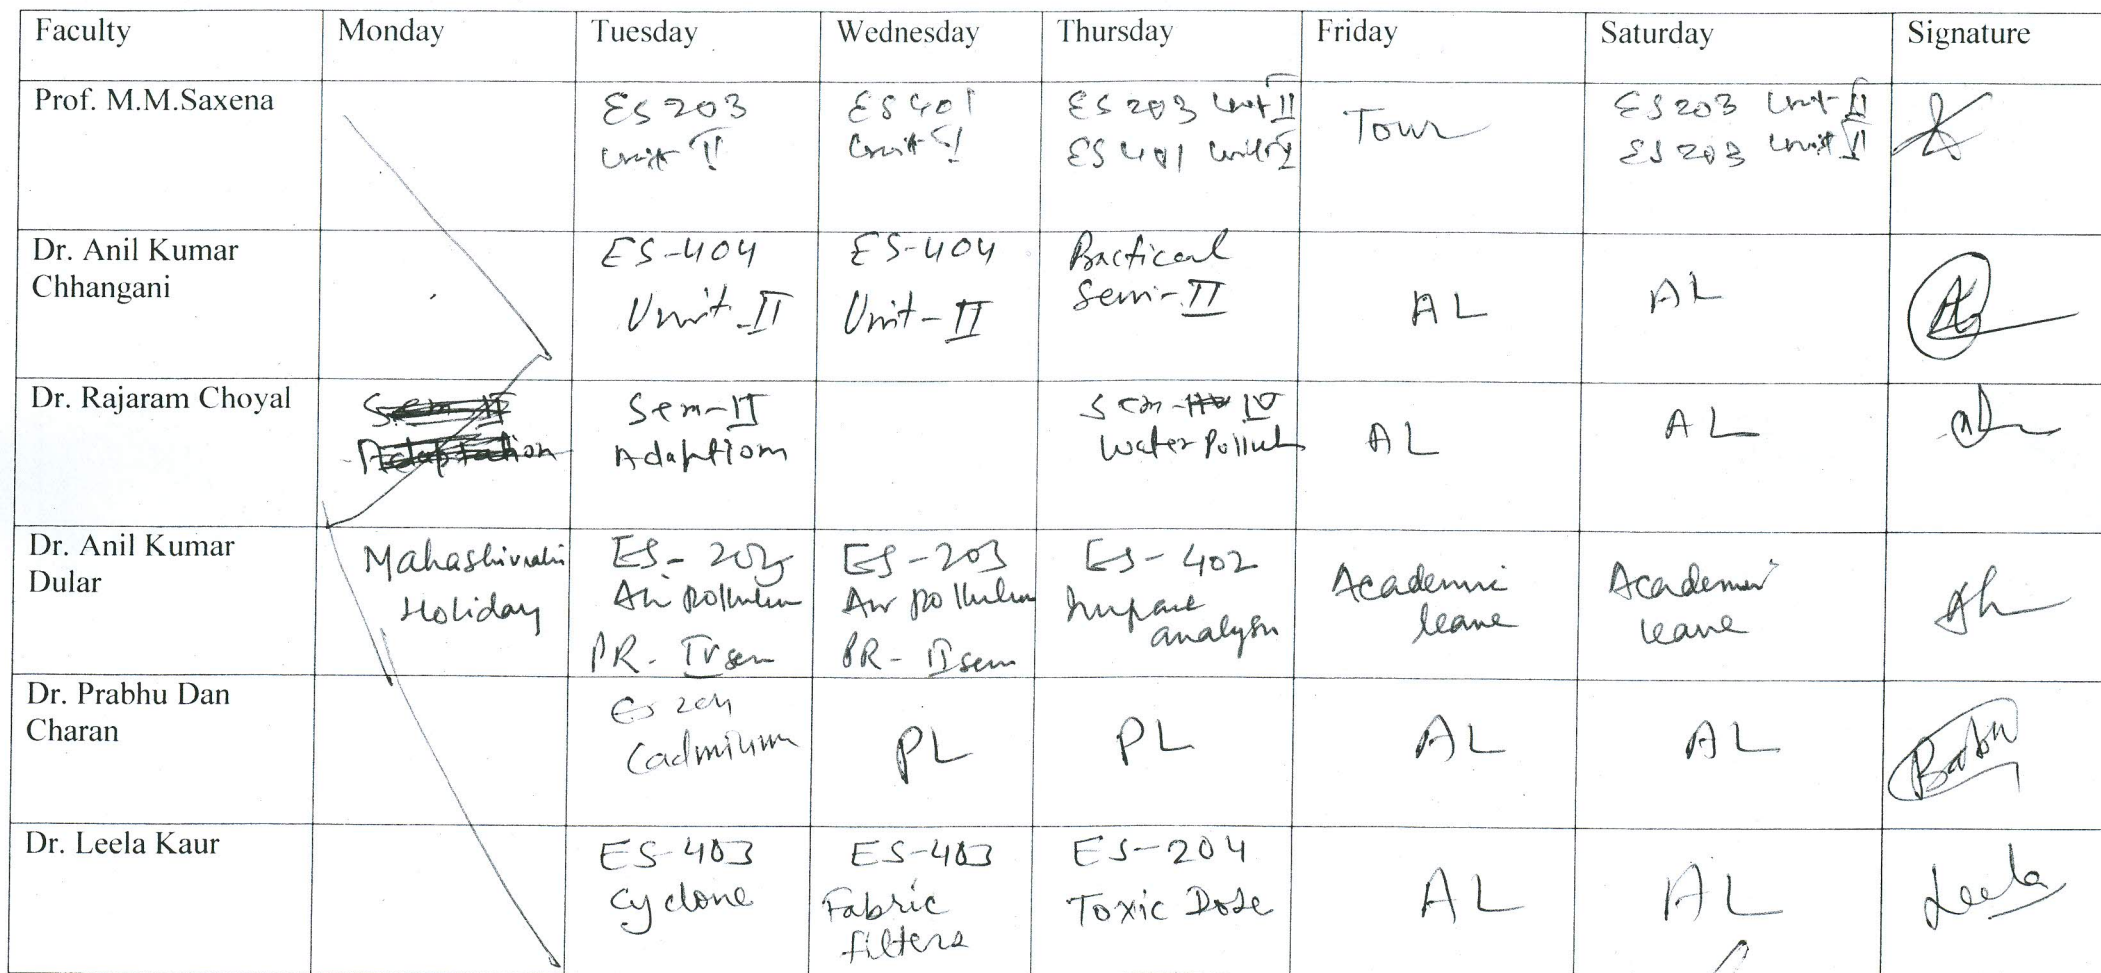 Faculty Monday Tuesday Wednesday Thursday Friday Saturday Signature
Prof. M.M.Saxena
ES 203
Unit II
ES 401
Unit
ES 203 Unit II
ES 401 Unit
Tour
ES 203 Unit-II
ES 203 Unit II
Dr. Anil Kumar
Chhangani
ES-404
Unit-II
ES-404
Unit-II
Practical
Sem-II
AL
AL
Dr. Rajaram Choyal
Sem-II
Adaptation
Sem-II
Adaption
Sem-IV
Water Pollut
AL
AL
Dr. Anil Kumar
Dular
Mahashivratri
Holiday
ES-203
Air pollution
PR-IV sem
ES-203
Air pollution
PR-II sem
ES-402
Impact
analysis
Academic
leave
Academic
leave
Dr. Prabhu Dan
Charan
ES 204
Cadmium
PL
PL
AL
AL
Dr. Leela Kaur
ES-403
Cyclone
ES-403
Fabric
filters
ES-204
Toxic Dose
AL
AL
Leela